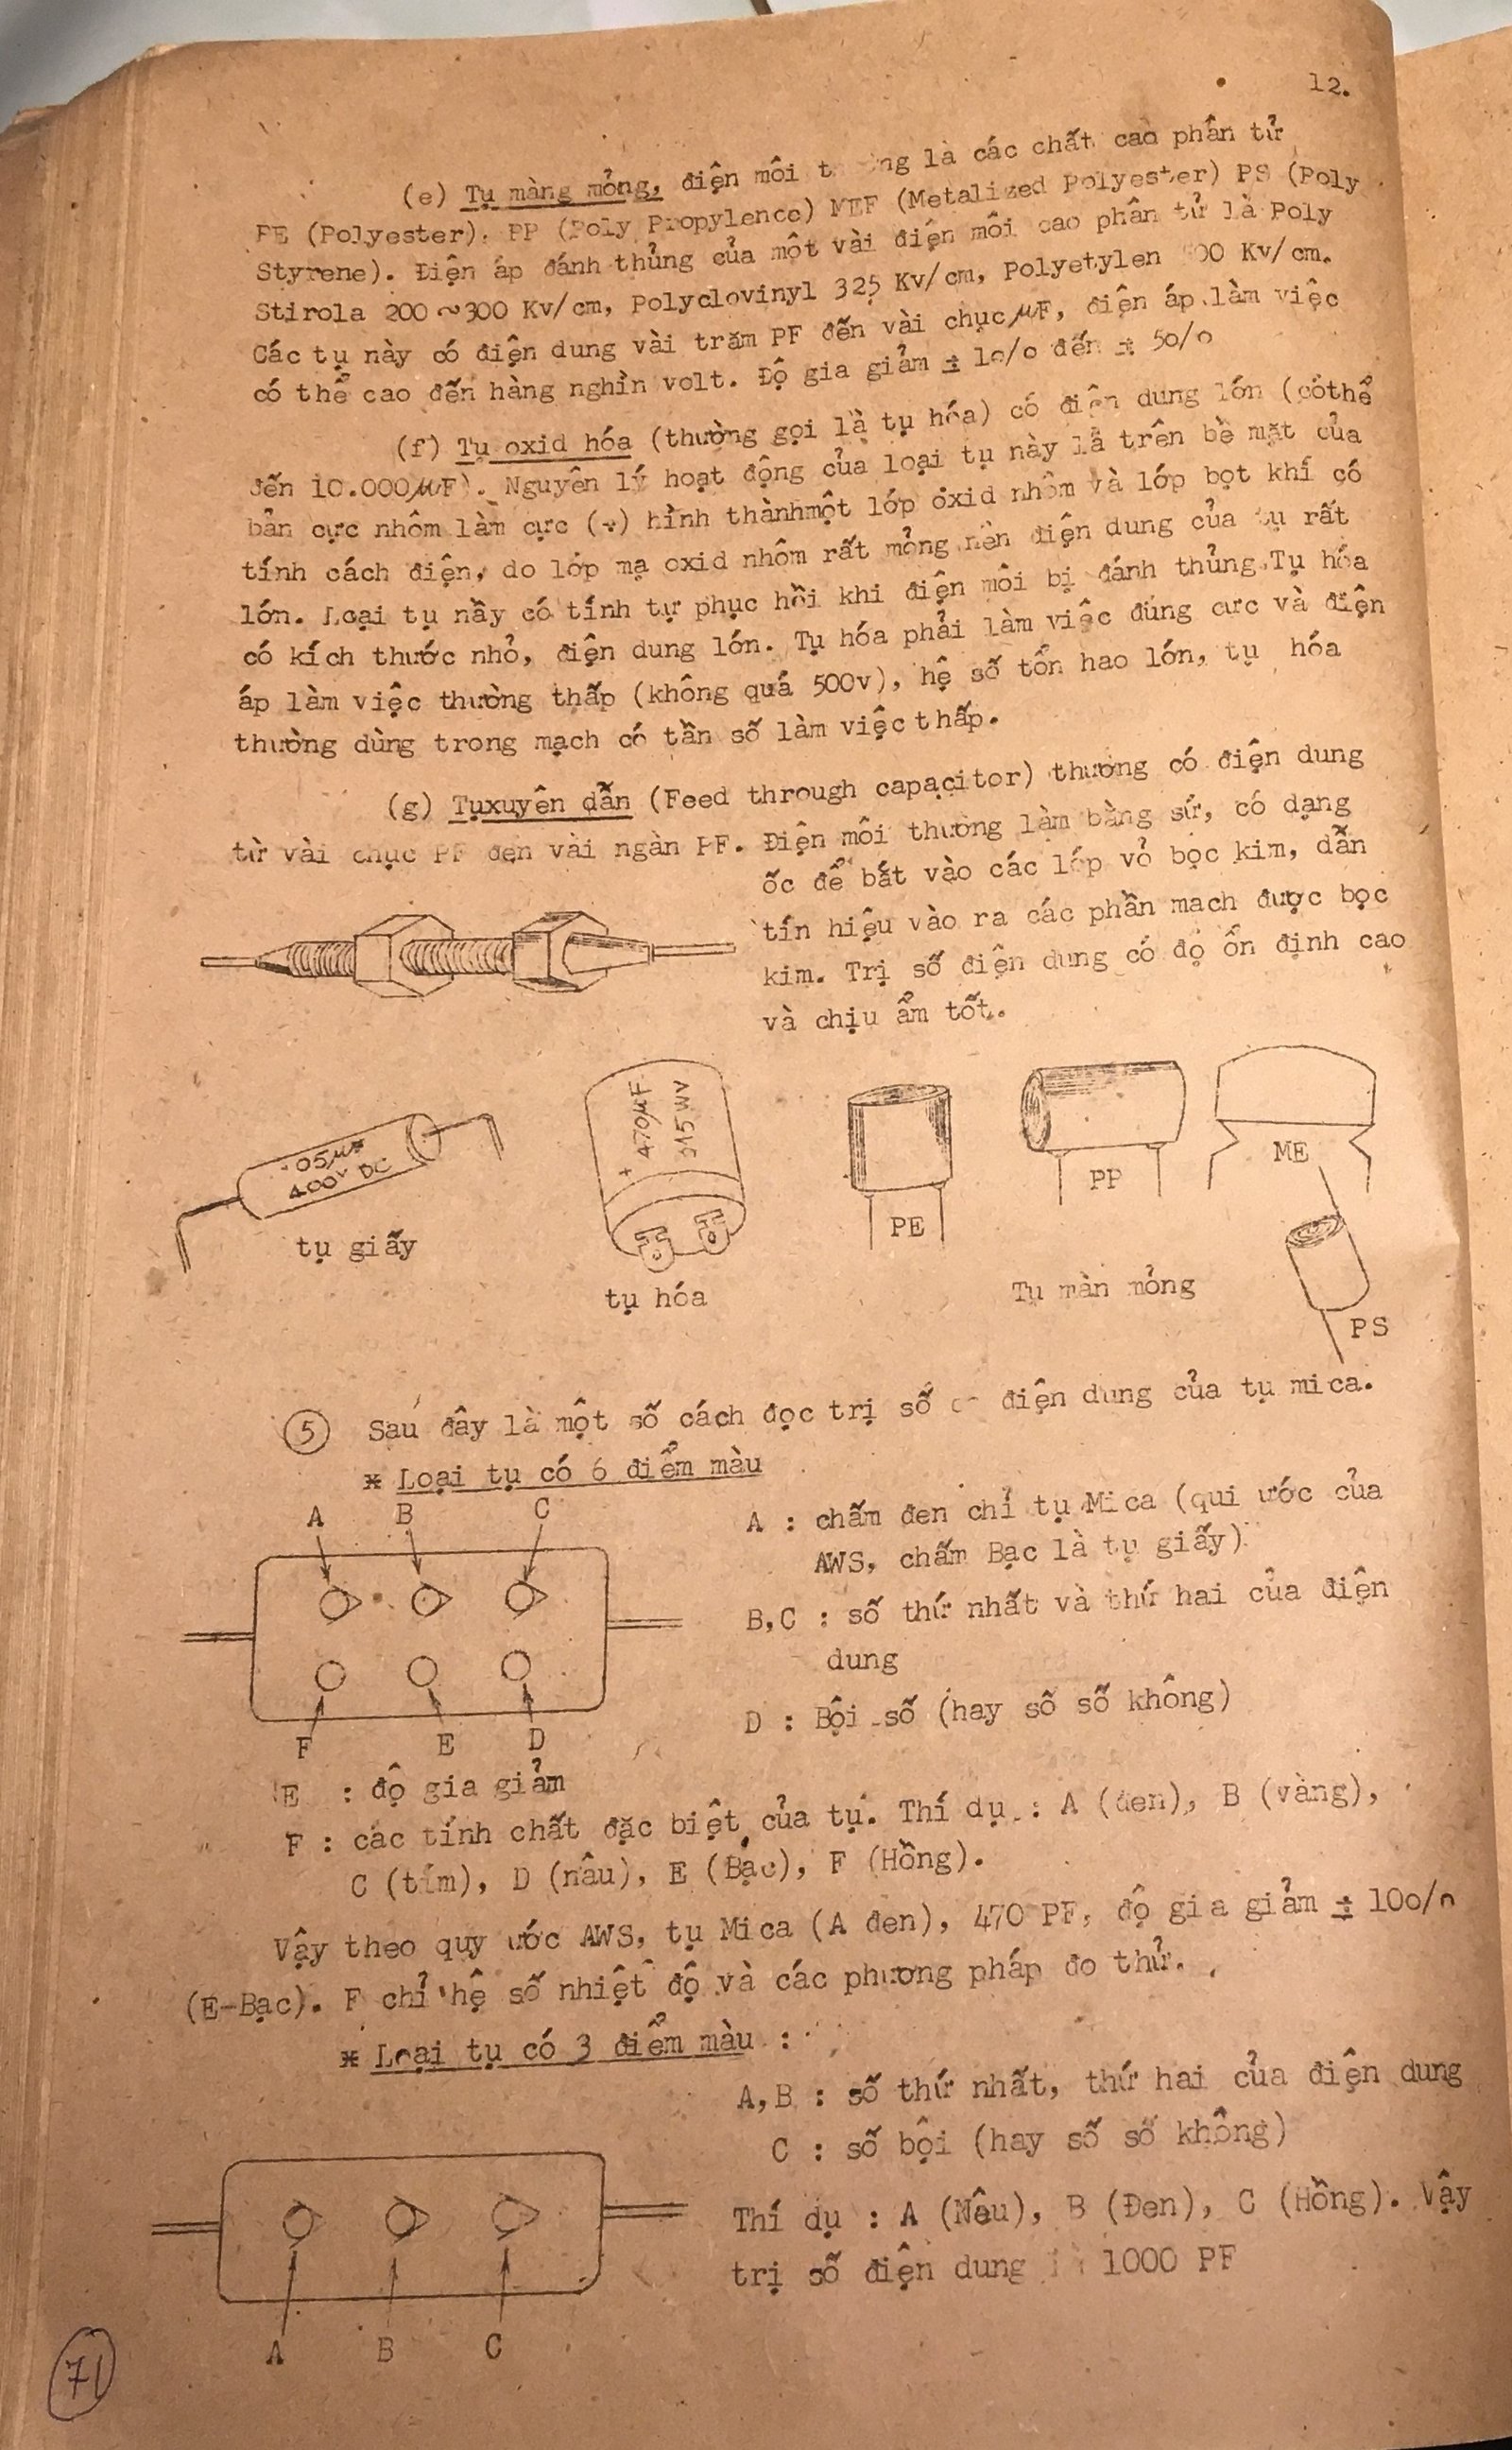 12.
(e) Tụ màng mỏng, điện môi là các chất cao phân tử
PE (Polyester), PP (Poly Propylence) MEF (Metalized Polyester) PS (Poly
Styrene). Điện áp đánh thủng của một vài điện môi cao phân tử là Poly
Stirola 200 ~ 300 Kv/cm, Polyclovinyl 325 Kv/cm, Polyetylen Kv/cm.
Các tụ này có điện dung vài trăm PF đến vài chục μF, điện áp làm việc
có thể cao đến hàng nghìn volt. Độ gia giảm ± 1o/o đến ± 5o/o
(f) Tụ oxid hóa (thường gọi là tụ hóa) có điện dung lớn (cóthể
đến 10.000μF). Nguyên lý hoạt động của loại tụ này là trên bề mặt của
bản cực nhôm làm cực (+) hình thànhmột lớp óxid nhôm và lớp bọt khí có
tính cách điện, do lớp mạ oxid nhôm rất mỏng nên điện dung của tụ rất
lớn. Loại tụ nầy có tính tự phục hồi khi điện môi bị đánh thủng.Tụ hóa
có kích thước nhỏ, điện dung lớn. Tụ hóa phải làm việc đúng cực và điện
áp làm việc thường thấp (không quá 500v), hệ số tổn hao lớn, tụ hóa
thường dùng trong mạch có tần số làm việc thấp.
(g) Tụxuyên dẫn (Feed through capacitor) thường có điện dung
từ vài chục PF đến vài ngàn PF. Điện môi thường làm bằng sứ, có dạng
ốc để bắt vào các lớp vỏ bọc kim, dẫn
tín hiệu vào ra các phần mạch được bọc
kim. Trị số điện dung có độ ổn định cao
và chịu ẩm tốt.
.05μF
400v DC
tụ giấy
+ 470μF
315WV
tụ hóa
PE
PP
ME
PS
Tụ màn mỏng
5 Sau đây là một số cách đọc trị số điện dung của tụ mica.
* Loại tụ có 6 điểm màu
A B C
F E D
A : chấm đen chỉ tụ Mica (qui ước của
AWS, chấm Bạc là tụ giấy)
B,C : số thứ nhất và thứ hai của điện
dung
D : Bội số (hay số số không)
E : độ gia giảm
F : các tính chất đặc biệt của tụ. Thí dụ : A (đen), B (vàng),
C (tím), D (nâu), E (Bạc), F (Hồng).
Vậy theo quy ước AWS, tụ Mica (A đen), 470 PF, độ gia giảm ± 10o/o
(E-Bạc). F chỉ hệ số nhiệt độ và các phương pháp đo thử.
* Loại tụ có 3 điểm màu :
A,B : số thứ nhất, thứ hai của điện dung
C : số bội (hay số số không)
Thí dụ : A (Nâu), B (Đen), C (Hồng). Vậy
trị số điện dung là 1000 PF
A B C
71